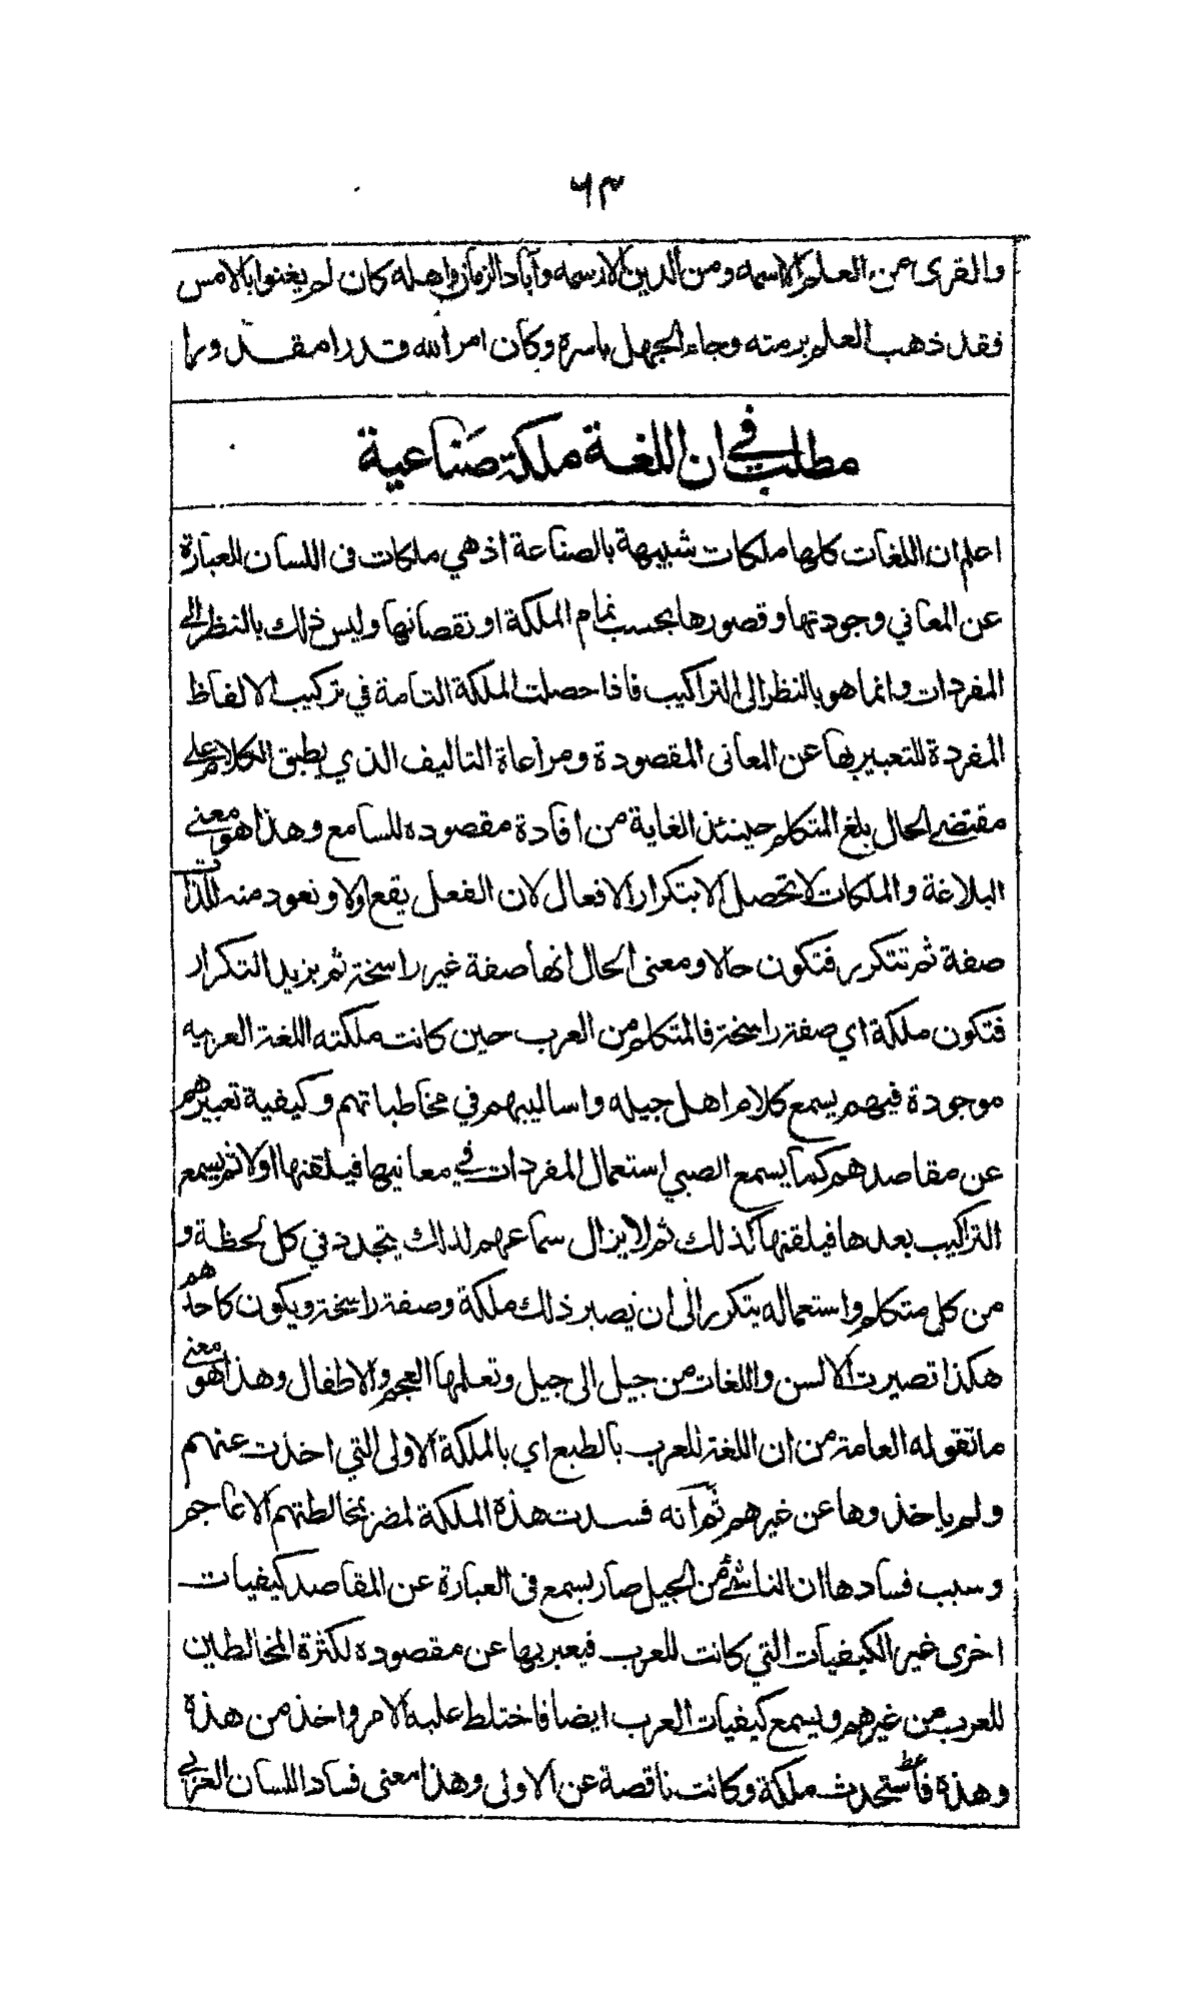 ٦٣
والقرى عن العلم الا اسمه ومن الدين الا رسمه وآباد الزمان واهله كان لم يغنوا بالامس
فقد ذهب العلم برمته وجاء الجهل باسره وكان امر الله قدرا مقدورا
مطلب في ان اللغة ملكة صناعية
اعلم ان اللغات كلها ملكات شبيهة بالصناعة اذ هي ملكات في اللسان للعبارة
عن المعاني وجودتها وقصورها بحسب تمام الملكة او نقصانها وليس ذلك بالنظر الى
المفردات وانما هو بالنظر الى التراكيب فاذا حصلت الملكة التامة في تركيب الالفاظ
المفردة للتعبير بها عن المعاني المقصودة ومراعاة التاليف الذي يطبق الكلام على
مقتضى الحال بلغ المتكلم حينئذ الغاية من افادة مقصوده للسامع وهذا هو معنى
البلاغة والملكات لا تحصل الا بتكرار الافعال لان الفعل يقع اولا ونعود منه للذات
صفة ثم تتكرر فتكون حالا ومعنى الحال انها صفة غير راسخة ثم يزيد التكرار
فتكون ملكة اي صفة راسخة فالمتكلم من العرب حين كانت ملكته اللغة العربيه
موجودة فيهم يسمع كلام اهل جيله واساليبهم في مخاطباتهم وكيفية تعبيرهم
عن مقاصدهم كما يسمع الصبي استعمال المفردات في معانيها فيلقنها اولا ثم يسمع
التراكيب بعدها فيلقنها كذلك ثم لا يزال سماعهم لذلك يتجدد في كل لحظة و
من كل متكلم واستعماله يتكرر الى ان يصير ذلك ملكة وصفة راسخة ويكون كاحدهم
هكذا تصيرت الالسن واللغات من جيل الى جيل وتعلمها العجم والاطفال وهذا هو معنى
ما تقوله العامة من ان اللغة للعرب بالطبع اي بالملكة الاولى التي اخذت عنهم
ولم ياخذوها عن غيرهم ثم انه فسدت هذة الملكة لمضر بمخالطتهم الاعاجم
وسبب فسادها ان الناشئ من الجيل صار يسمع في العبارة عن المقاصد كيفيات
اخرى غير الكيفيات التي كانت للعرب فيعبر بها عن مقصوده لكثرة المخالطين
للعرب من غيرهم ويسمع كيفيات العرب ايضا فاختلط عليه الامر واخذ من هذة
وهذة فاستحدث ملكة وكانت ناقصة عن الاولى وهذا معنى فساد اللسان العربي